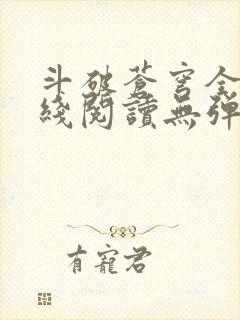 斗破蒼穹全
綫閱讀無彈
有寵君